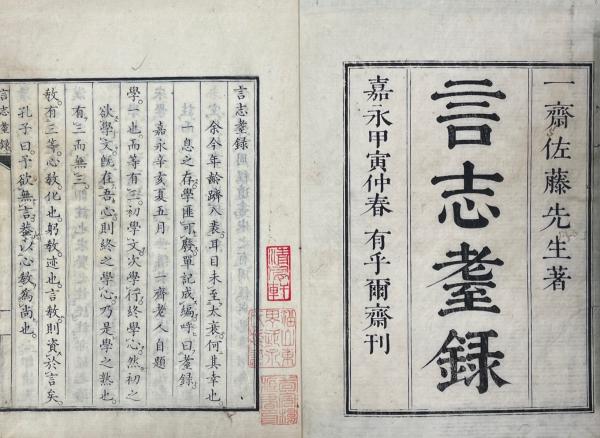 一齋佐藤先生著
言志耋録
嘉永甲寅仲春 有乎爾齋刊
言志耋録
余今年齡躋八袠耳目未至太衰何其幸也
一息之存學匪可廢單記成編呼曰耋録
嘉永辛亥夏五月 一齋老人自題
學一也而等有三初學文次學行終學心然初之
欲學文既在吾心則終之學心乃是學之熟也
有三而無三
教有三等心教化也躬教迹也言教則資於言矣
孔子曰予欲無言蓋以心教爲尚也
言志耋録